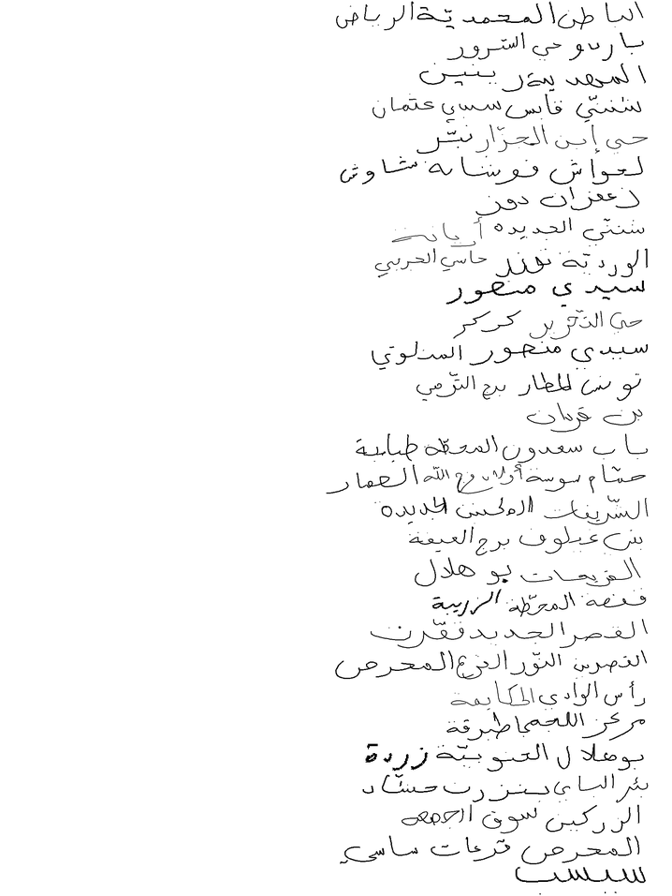 الباطن المحمديّة الرياض
باردو حي السرور
المهدية بنين
شننّي قابس سيدي عثمان
حي إبن الجزّار نبّر
لعواش فوشانة شاوش
زعفران دوز
شننّي الجديدة أريانة
الورديّة نفزة حاسي الحربي
سيدي منصور
حي التّحرير كركر
سيدي منصور السلوقي
تونس المطار برج التّرمي
بن قربان
باب سعدون المحطّة طبلبة
حشّام سوسة أولاد فرج الله العمار
الشّرينات الجديدة
بني غيلوف برج العيفة
الفريحات بوهلال
قفصة المحطّة الزريبة
القصر الجديد تقّرت
القصرين النّور الفرع المحرص
رأس الوادي الحكايمة
مركز اللجمي طبرقة
بوهلال الجنوبيّة زردة
بئر الباي بنزرت حشّاد
الزركين سوق الجمعة
المحرص قرعات ساسي
سيسب